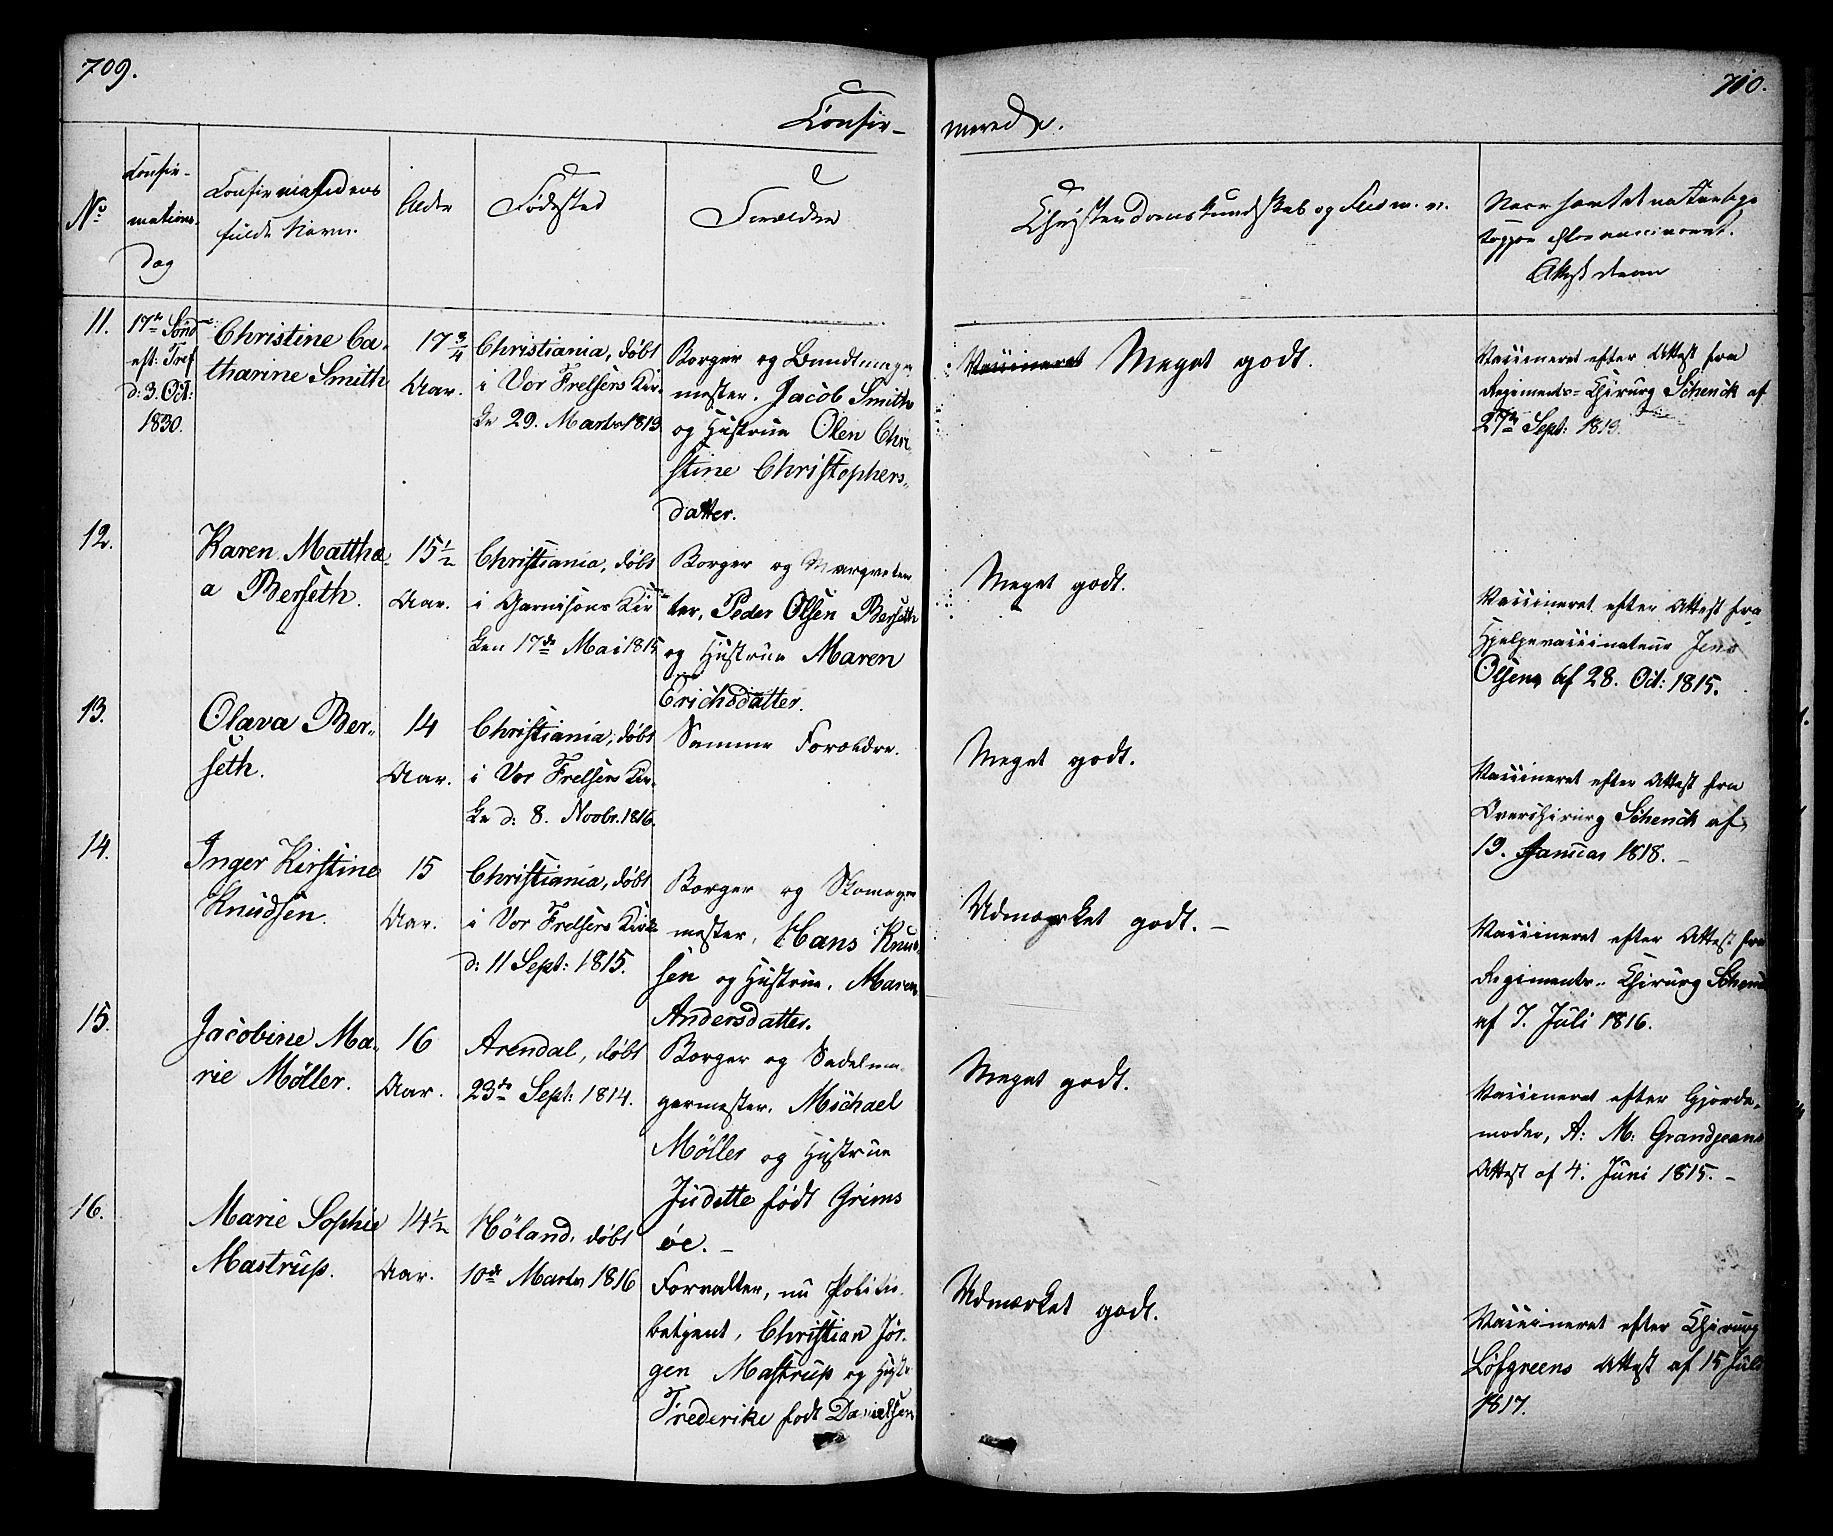 709.
710.
Confir-
merede.
No
Confir-
mations-
Dag
Confirmandens
fulde Navn.
Alder
Fødested
Forældre
Christendomskundskab og Flid m. v.
Naar havt de naturlige
Kopper eller vaccineret.
Attest derom
11.
17de Sønd
eft: Tref
d: 3. Oct:
1830.
Christine Ca-
tharine Smith
17 3/4
Aar.
Christiania, døbt
i Vor Frelsers Kir-
ke 29. Marts 1813
Borger og Bundtmager
mester, Jacob Smith
og Hustrue Olen Chri-
stine Christophers-
datter.
Vaccineret Meget godt.
Vaccineret efter Attest fra
Regiments-Chirurg Schenck af
27de Sept: 1813.
12.
Karen Matthe-
a Berseth.
15 1/2
Aar.
Christiania, døbt
i Garnisons Kir-
ken 17de Mai 1815
Borger og Marqveten
ter, Peder Olsen Berseth
og Hustrue Maren
Erichsdatter.
Meget godt.
Vaccineret efter Attest fra
Hjelpevaccinateur Jens
Olsen af 28. Oct: 1815.
13.
Olava Ber-
seth.
14
Aar.
Christiania, døbt
i Vor Frelsers Kir-
ke d: 8. Novbr. 1816.
Samme Forældre.
Meget godt.
Vaccineret efter Attest fra
Overchirurg Schenck af
19. Januar 1818.-
14.
Inger Kirstine
Knudsen.
15
Aar.
Christiania, døbt
i Vor Frelsers Kirke
d: 11 Sept: 1815.
Borger og Skomager
mester, Hans Knud
sen og Hustrue, Maren
Andersdatter.
Udmærket godt. -
Vaccineret efter Attest fra
Regiments-Chirurg Schenck
af 7. Juli 1816.
15.
Jacobine Ma-
rie Möller.
16
Aar.
Arendal, døbt
23de Sept: 1814.
Borger og Sadelma-
germester, Michael
Möller og Hustrue
Judette født Grims
øe. -
Meget godt.
Vaccineret efter Gjorde-
moder, A: M: Grandjeans
Attest af 4. Juni 1815. -
16.
Marie Sophie
Mastrup.
14 1/2
Aar.
Höland, døbt
10de Marts 1816
Forvalter, nu Politie
betjent, Christian Jør-
gen Mastrup og Hustr
Frederike født Danielsen
Udmærket godt.
Vaccineret efter Chirurg
Löfgreens Attest af 15 Juli
1817.